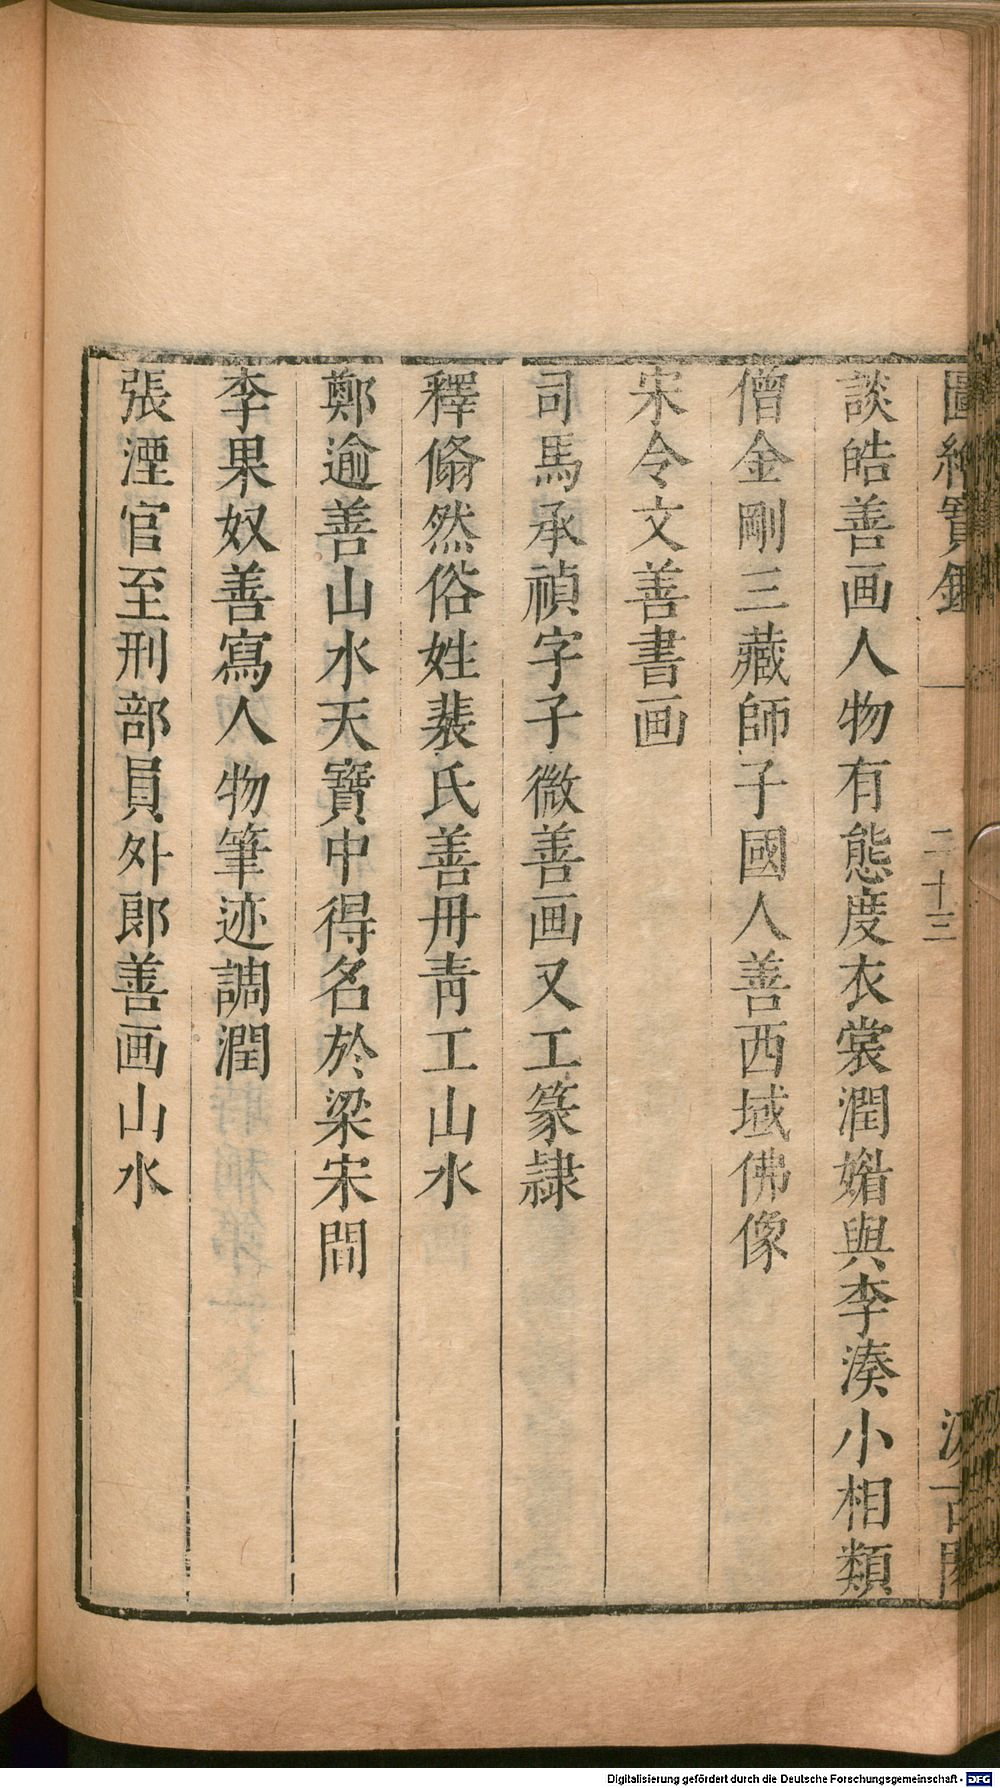 圖繪寶鑑 二十三 汲古閣
談皓善画人物有態度衣裳潤媚與李湊小相類
僧金剛三藏師子國人善西域佛像
宋令文善書画
司馬承禎字子微善画又工篆隷
釋翛然俗姓裴氏善丹靑工山水
鄭逾善山水天寶中得名於梁宋間
李果奴善寫人物筆迹調潤
張湮官至刑部員外郎善画山水
Digitalisierung gefördert durch die Deutsche Forschungsgemeinschaft - DFG